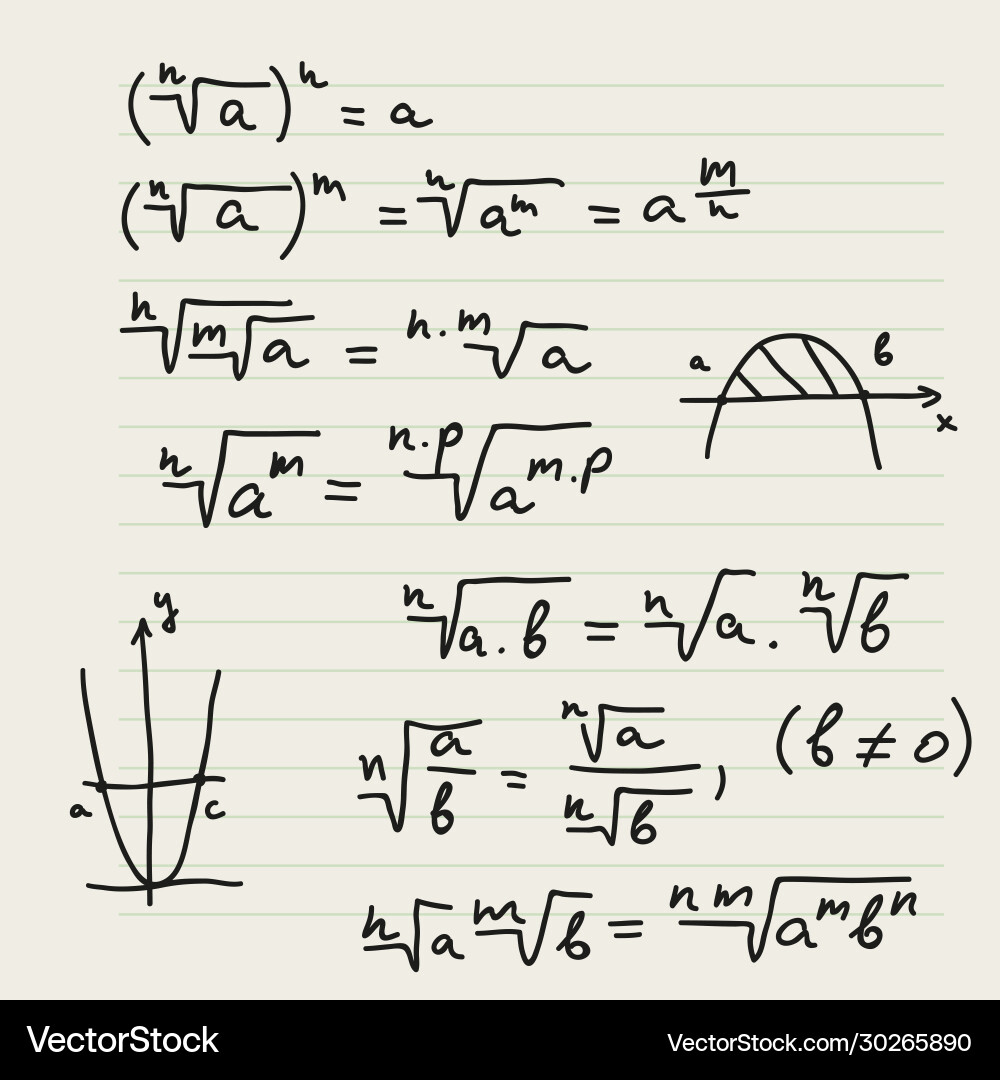 (ⁿ√a)ⁿ = a
(ⁿ√a)ᵐ = ⁿ√aᵐ = a^(m/n)
ⁿ√(ᵐ√a) = ⁿ·ᵐ√a
a в x
ⁿ√aᵐ = ⁿ·ᵖ√a^(m·p)
y
ⁿ√(a·в) = ⁿ√a · ⁿ√в
ⁿ√(a/в) = ⁿ√a / ⁿ√в , (в ≠ 0)
a c
ⁿ√a ᵐ√в = ⁿᵐ√(aᵐвⁿ)
VectorStock VectorStock.com/30265890